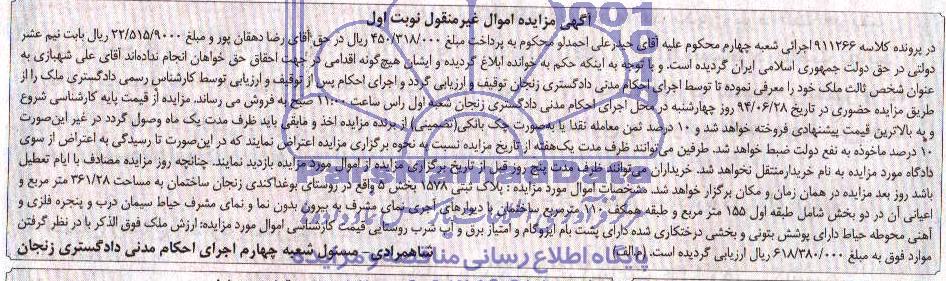 آگهی مزایده اموال غیرمنقول نوبت اول
در پرونده کلاسه ۹۱۱۲۶۶ اجرائی شعبه چهارم محکوم علیه آقای حیدرعلی احمدلو محکوم به پرداخت مبلغ ۴۵۰/۳۱۸/۰۰۰ ریال در حق آقای رضا دهقان پور و مبلغ ۲۲/۵۱۵/۹۰۰۰ ریال بابت نیم عشر
دولتی در حق دولت جمهوری اسلامی ایران گردیده است. و با توجه به اینکه حکم به خوانده ابلاغ گردیده و ایشان هیچ‌گونه اقدامی در جهت احقاق حق خواهان انجام نداده‌اند آقای علی شهبازی به
عنوان شخص ثالث ملک خود را معرفی نموده تا توسط اجرای احکام مدنی دادگستری زنجان توقیف و ارزیابی گردد و اجرای احکام پس از توقیف و ارزیابی توسط کارشناس رسمی دادگستری ملک را از
طریق مزایده حضوری در تاریخ ۹۴/۰۶/۲۸ روز چهارشنبه در محل اجرای احکام مدنی دادگستری زنجان شعبه اول راس ساعت ۱۱:۰۰ صبح به فروش می رساند. مزایده از قیمت پایه کارشناسی شروع
و به بالاترین قیمت پیشنهادی فروخته خواهد شد و ۱۰ درصد ثمن معامله نقدا یا به‌صورت چک بانکی(تضمینی) از برنده مزایده اخذ و مابقی باید ظرف مدت یک ماه وصول گردد در غیر این‌صورت
۱۰ درصد ماخوذه به نفع دولت ضبط خواهد شد. طرفین می‌توانند ظرف مدت یک‌هفته از تاریخ مزایده نسبت به نحوه برگزاری مزایده اعتراض نمایند که در این‌صورت تا رسیدگی به اعتراض از سوی
دادگاه مورد مزایده به نام خریدارمنتقل نخواهد شد. خریداران می‌توانند ظرف مدت پنج روز قبل از تاریخ برگزاری مزایده از اموال مورد مزایده بازدید نمایند. چنانچه روز مزایده مصادف با ایام تعطیل
باشد روز بعد مزایده در همان زمان و مکان برگزار خواهد شد. مشخصات اموال مورد مزایده: پلاک ثبتی ۱۵۷۸ بخش ۵ واقع در روستای بوغداکندی زنجان ساختمان به مساحت ۳۶۱/۲۸ متر مربع و
اعیانی آن در دو بخش شامل طبقه اول ۱۵۵ متر مربع و طبقه همکف ۱۱۰ مترمربع ساختمان با دیوارهای آجری نمای مشرف به بیرون بدون نما و نمای مشرف حیاط سیمان درب و پنجره فلزی و
آهنی محوطه حیاط دارای پوشش بتونی و بخشی درختکاری شده دارای پشت بام ایزوگام و امتیاز برق و آب شرب روستایی قیمت کارشناسی اموال مورد مزایده: ارزش ملک فوق الذکر با در نظر گرفتن
موارد فوق به مبلغ ۶۱۸/۳۸۰/۰۰۰ ریال ارزیابی گردیده است. (م‌الف)
شاهمرادی - مسئول شعبه چهارم اجرای احکام مدنی دادگستری زنجان
پایگاه اطلاع رسانی مناقصه و مزایده